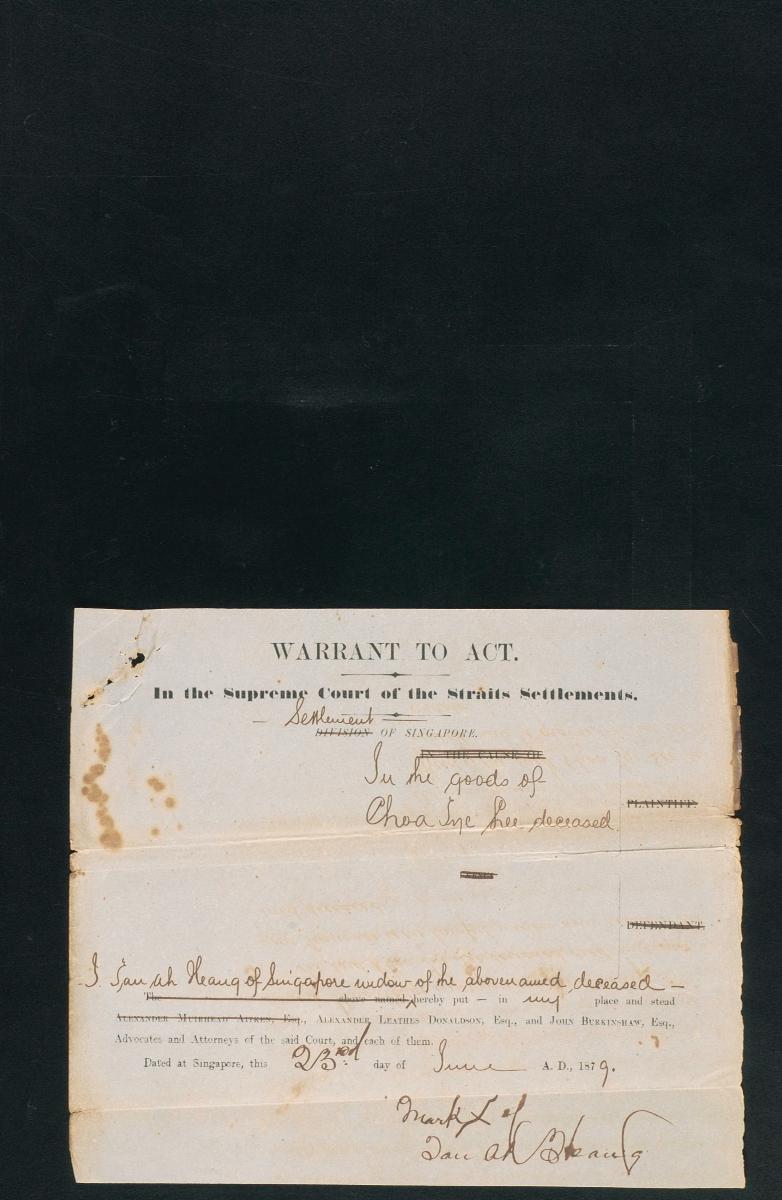 WARRANT TO ACT.
In the Supreme Court of the Straits Settlements.
Settlement
DIVISION OF SINGAPORE.
IN THE CAUSE OF
In the goods of
Choa Tye deceased
PLAINTIFF.
DEFENDANT.
I Tan Ah Heang of Singapore widow of the abovenamed deceased —
The above named hereby put — in my place and stead
ALEXANDER MUIRHEAD AITKEN, Esq., ALEXANDER LEATHES DONALDSON, Esq., and JOHN BURKINSHAW, Esq.,
Advocates and Attorneys of the said Court, and each of them.
Dated at Singapore, this 23rd day of June A. D., 1879.
Mark X of
Tan Ah Heang